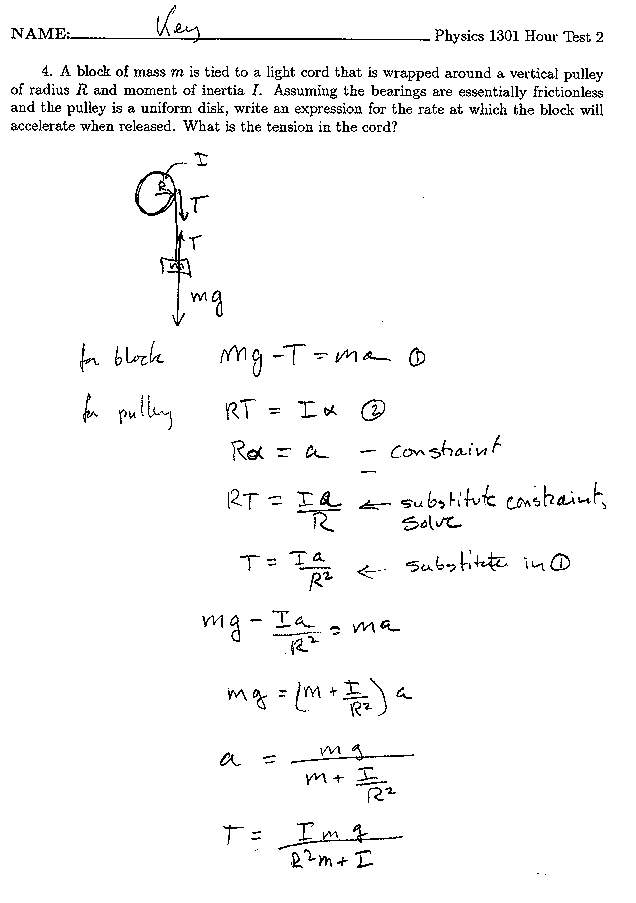 NAME: Key Physics 1301 Hour Test 2
4. A block of mass m is tied to a light cord that is wrapped around a vertical pulley
of radius R and moment of inertia I. Assuming the bearings are essentially frictionless
and the pulley is a uniform disk, write an expression for the rate at which the block will
accelerate when released. What is the tension in the cord?
I
R
T
T
m
mg
for block mg - T = ma ①
for pulley RT = Iα ②
Rα = a - constraint
RT = Ia/R ← substitute constraint,
solve
T = Ia/R² ← substitute in ①
mg - Ia/R² = ma
mg = (m + I/R²) a
a = mg/(m + I/R²)
T = Img/(R²m + I)